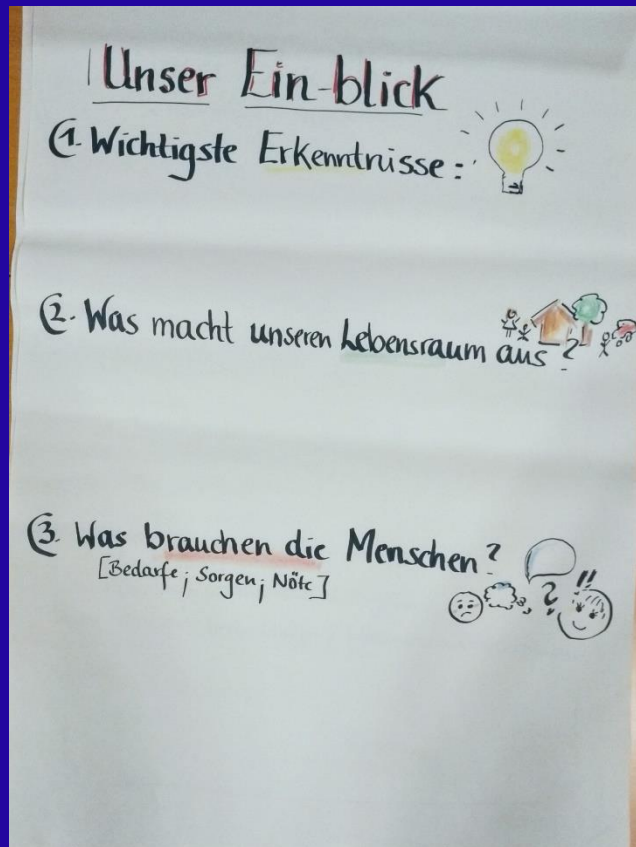 Unser Ein-blick
1. Wichtigste Erkenntnisse:
2. Was macht unseren Lebensraum aus?
3. Was brauchen die Menschen?
[Bedarfe; Sorgen; Nöte]
? !!